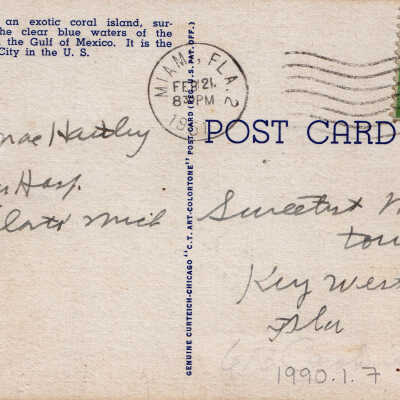 an exotic coral island, sur-
he clear blue waters of the
the Gulf of Mexico. It is the
City in the U. S.
MIAMI, FLA. 2
FEB 21
8 PM
1951
POST CARD
GENUINE CURTEICH-CHICAGO "C.T. ART-COLORTONE" POST CARD (REG. U.S. PAT. OFF.)
Hosp.
Mich
Sweetest
tow
Key West
Fla
1990.1.7